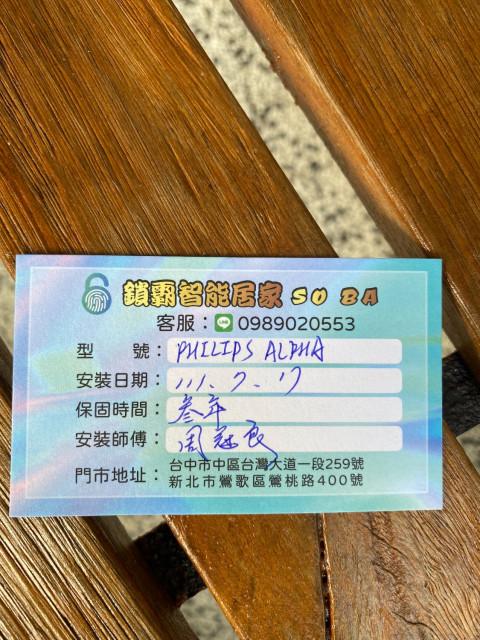 鎖霸智能居家 SO BA
客服：LINE 0989020553
型 號：PHILIPS ALPHA
安裝日期：111.7.17
保固時間：叁年
安裝師傅：周冠良
門市地址：台中市中區台灣大道一段259號
新北市鶯歌區鶯桃路400號